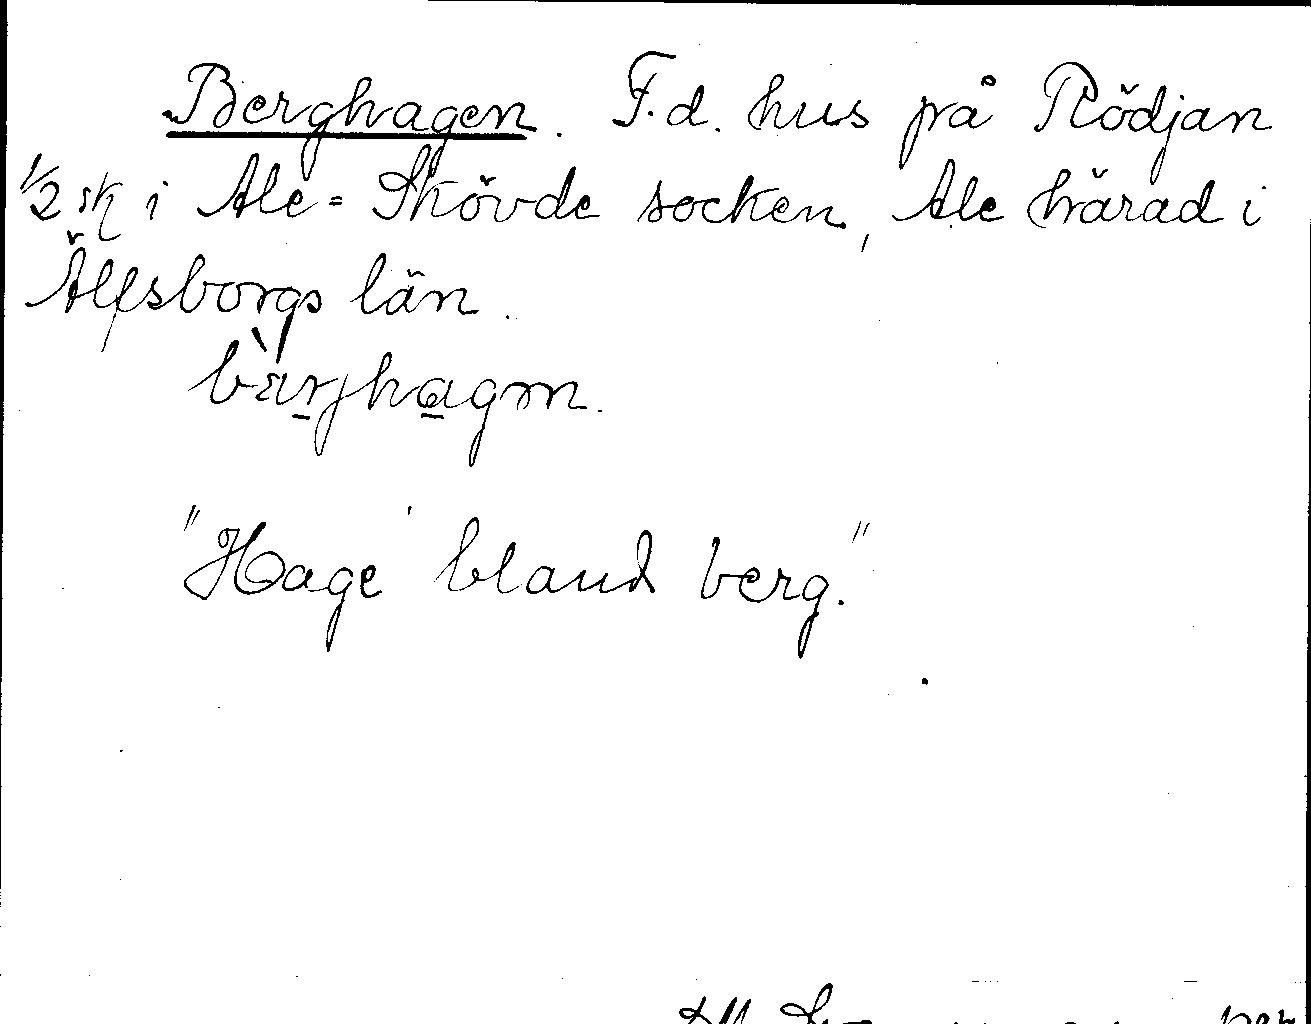 Berghagen. F.d. hus på Rödjan
1/2 sk i Ale-Skövde socken, Ale härad i
Älfsborgs län.
bàrjhagən.
"Hage bland berg."